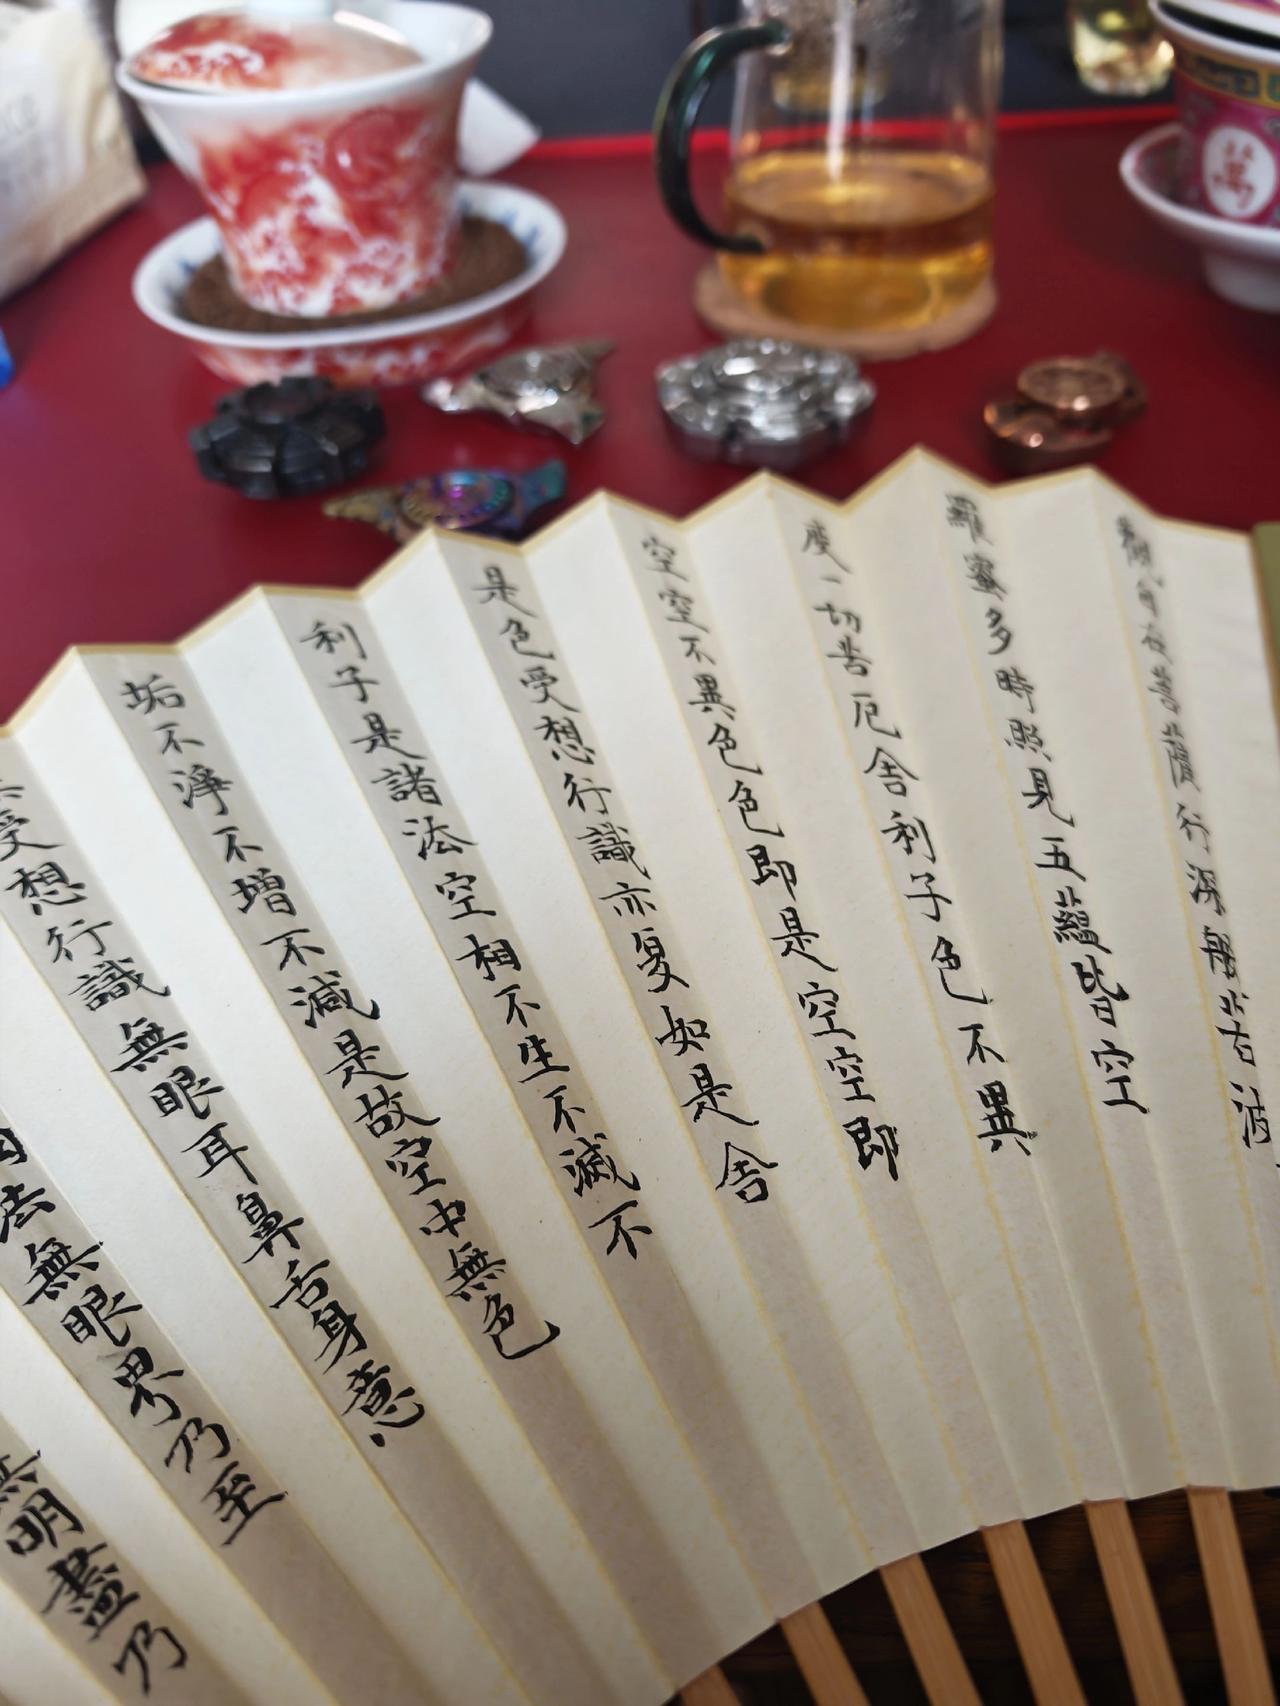 觀自在菩薩行深般若波
羅蜜多時照見五蘊皆空
度一切苦厄舍利子色不異
空空不異色色即是空空即
是色受想行識亦复如是舍
利子是諸法空相不生不滅不
垢不淨不增不減是故空中無色
受想行識無眼耳鼻舌身意
法無眼界乃至
無明盡乃
萬